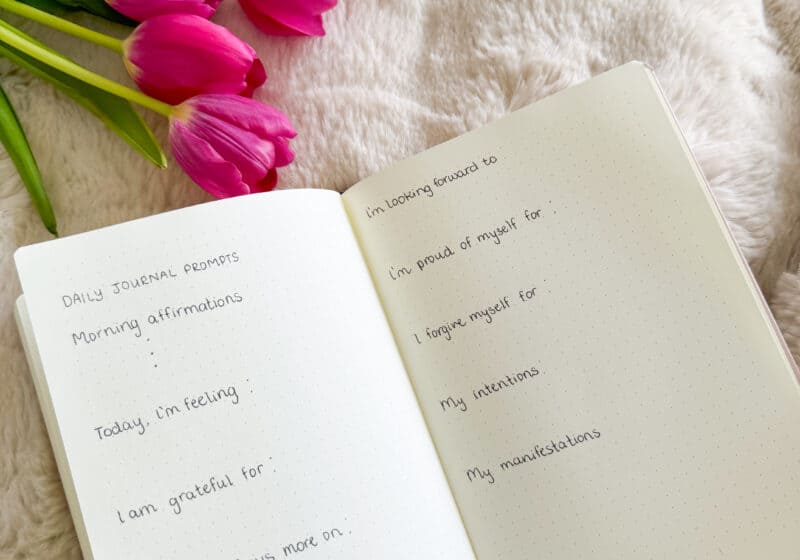 DAILY JOURNAL PROMPTS
Morning affirmations
:
Today, i'm feeling :
I am grateful for :
more on :
i'm looking forward to
i'm proud of myself for :
I forgive myself for :
My intentions
My manifestations